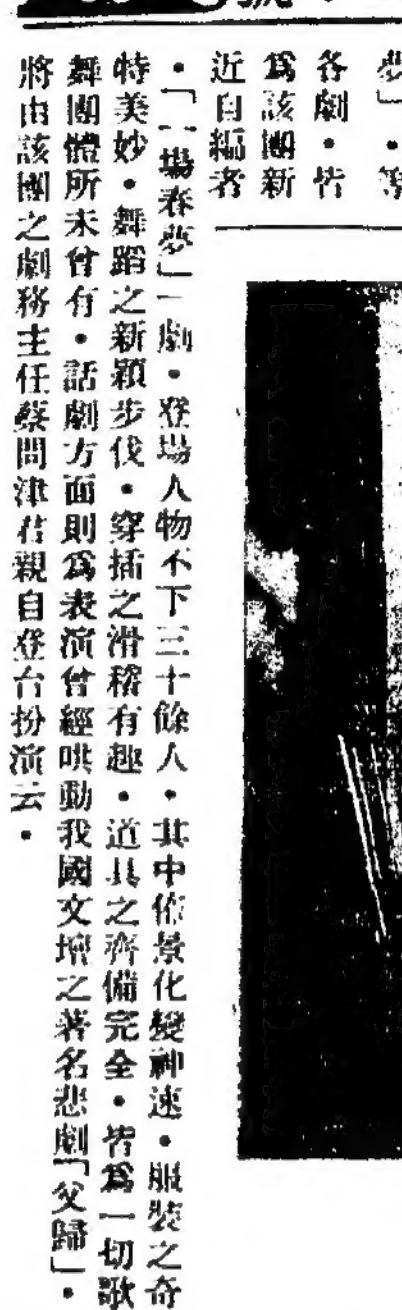 夢」・等
各劇・皆
爲該團新
近自編者
・「一場春夢」一劇・登場人物不下三十餘人・其中佈景化變神速・服裝之奇
特美妙・舞蹈之新穎步伐・穿插之滑稽有趣・道具之齊備完全・皆爲一切歌
舞團體所未曾有・話劇方面則爲表演曾經哄動我國文壇之著名悲劇「父歸」・
將由該團之劇務主任蔡問津君親自登台扮演云・